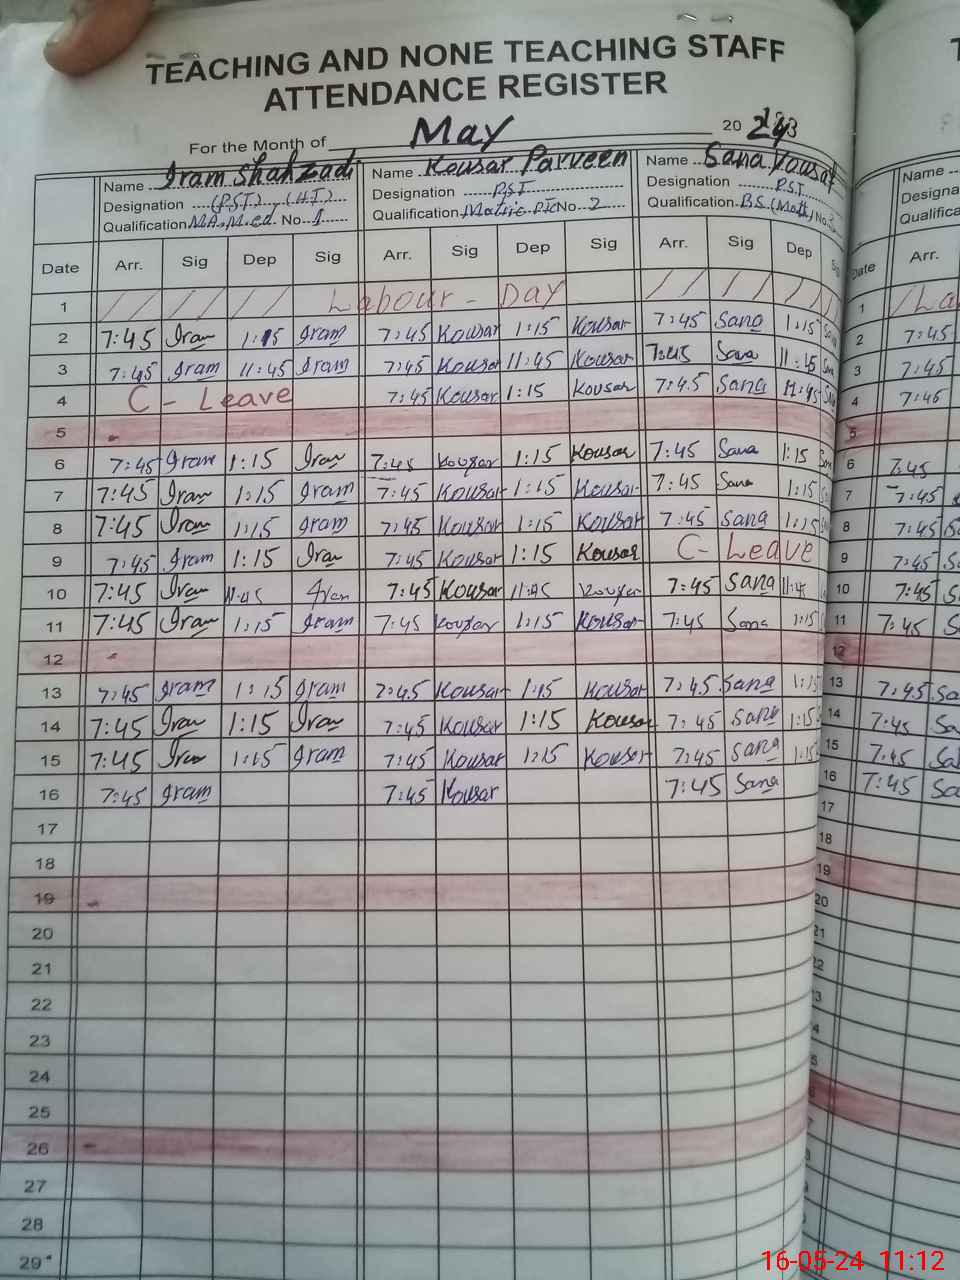 TEACHING AND NONE TEACHING STAFF
ATTENDANCE REGISTER
For the Month of May 20 24
Name Iram Shahzadi Name Kousar Parveen Name Sana Yousaf
Designation (PST), (HT) Designation PST Designation PST
Qualification MA, M.ed No 1 Qualification Matric PTC No 2 Qualification BS (Math) No
Date Arr. Sig Dep Sig Arr. Sig Dep Sig Arr. Sig Dep Date Arr.
1 Labour - Day 1
2 7:45 Iram 1:15 Iram 7:45 Kousar 1:15 Kousar 7:45 Sana 1:15 2 7:45
3 7:45 Iram 11:45 Iram 7:45 Kousar 11:45 Kousar 7:45 Sana 11:45 3 7:45
4 C - Leave 7:45 Kousar 1:15 Kousar 7:45 Sana 11:45 4 7:45
5 5
6 7:45 Iram 1:15 Iram 7:45 Kousar 1:15 Kousar 7:45 Sana 1:15 6 7:45
7 7:45 Iram 1:15 Iram 7:45 Kousar 1:15 Kousar 7:45 Sana 1:15 7 7:45
8 7:45 Iram 1:15 Iram 7:45 Kousar 1:15 Kousar 7:45 Sana 1:15 8 7:45
9 7:45 Iram 1:15 Iram 7:45 Kousar 1:15 Kousar C - Leave 9 7:45
10 7:45 Iram 11:45 Iram 7:45 Kousar 11:45 Kousar 7:45 Sana 11:45 10 7:45
11 7:45 Iram 1:15 Iram 7:45 Kousar 1:15 Kousar 7:45 Sana 1:15 11 7:45
12 12
13 7:45 Iram 1:15 Iram 7:45 Kousar 1:15 Kousar 7:45 Sana 1:15 13 7:45
14 7:45 Iram 1:15 Iram 7:45 Kousar 1:15 Kousar 7:45 Sana 1:15 14 7:45
15 7:45 Iram 1:15 Iram 7:45 Kousar 1:15 Kousar 7:45 Sana 1:15 15 7:45
16 7:45 Iram 7:45 Kousar 7:45 Sana 16 7:45
17 17
18 18
19 19
20 20
21 21
22
23
24
25
26
27
28
29
16-05-24 11:12